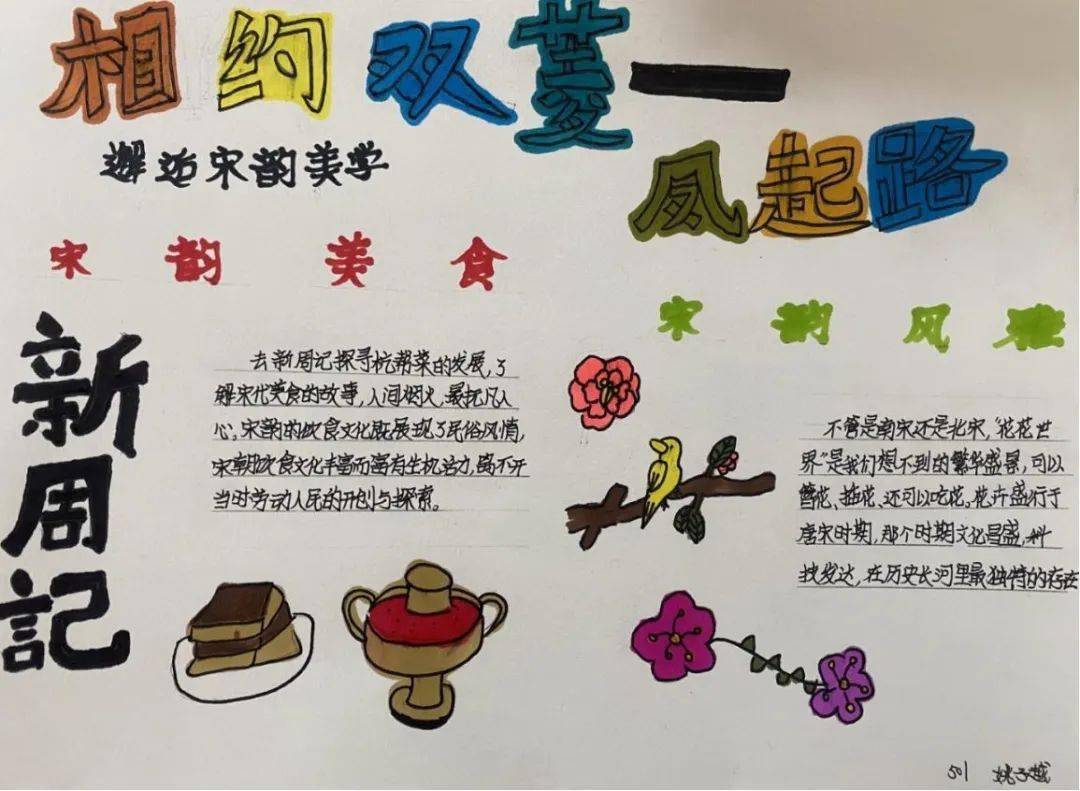 相约双菱—
凤起路
邂逅宋韵美学
宋韵美食
新周记
去新周记探寻杭帮菜的发展,了
解宋代美食的故事,人间烟火,最抚凡人
心。宋韵的饮食文化既展现了民俗风情,
宋朝饮食文化丰富而富有生机活力,离不开
当时劳动人民的开创与探索。
宋韵风雅
不管是南宋还是北宋,“花花世
界”是我们想不到的繁华盛景,可以
簪花、插花、还可以吃花。花卉盛行于
唐宋时期,那个时期文化昌盛,科
技发达,在历史长河里最独特的存在
501 姚子越